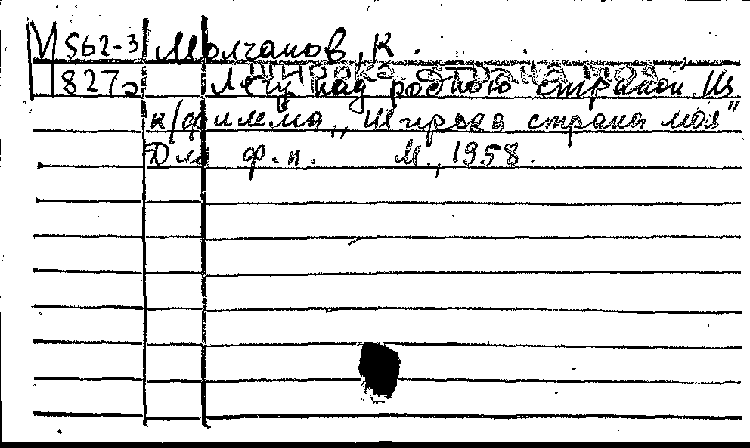 М 562-3 Молчанов, К.
827а Лечу над родною страной. Из
к/фильма „Широка страна моя"
Для ф-п. М., 1958.